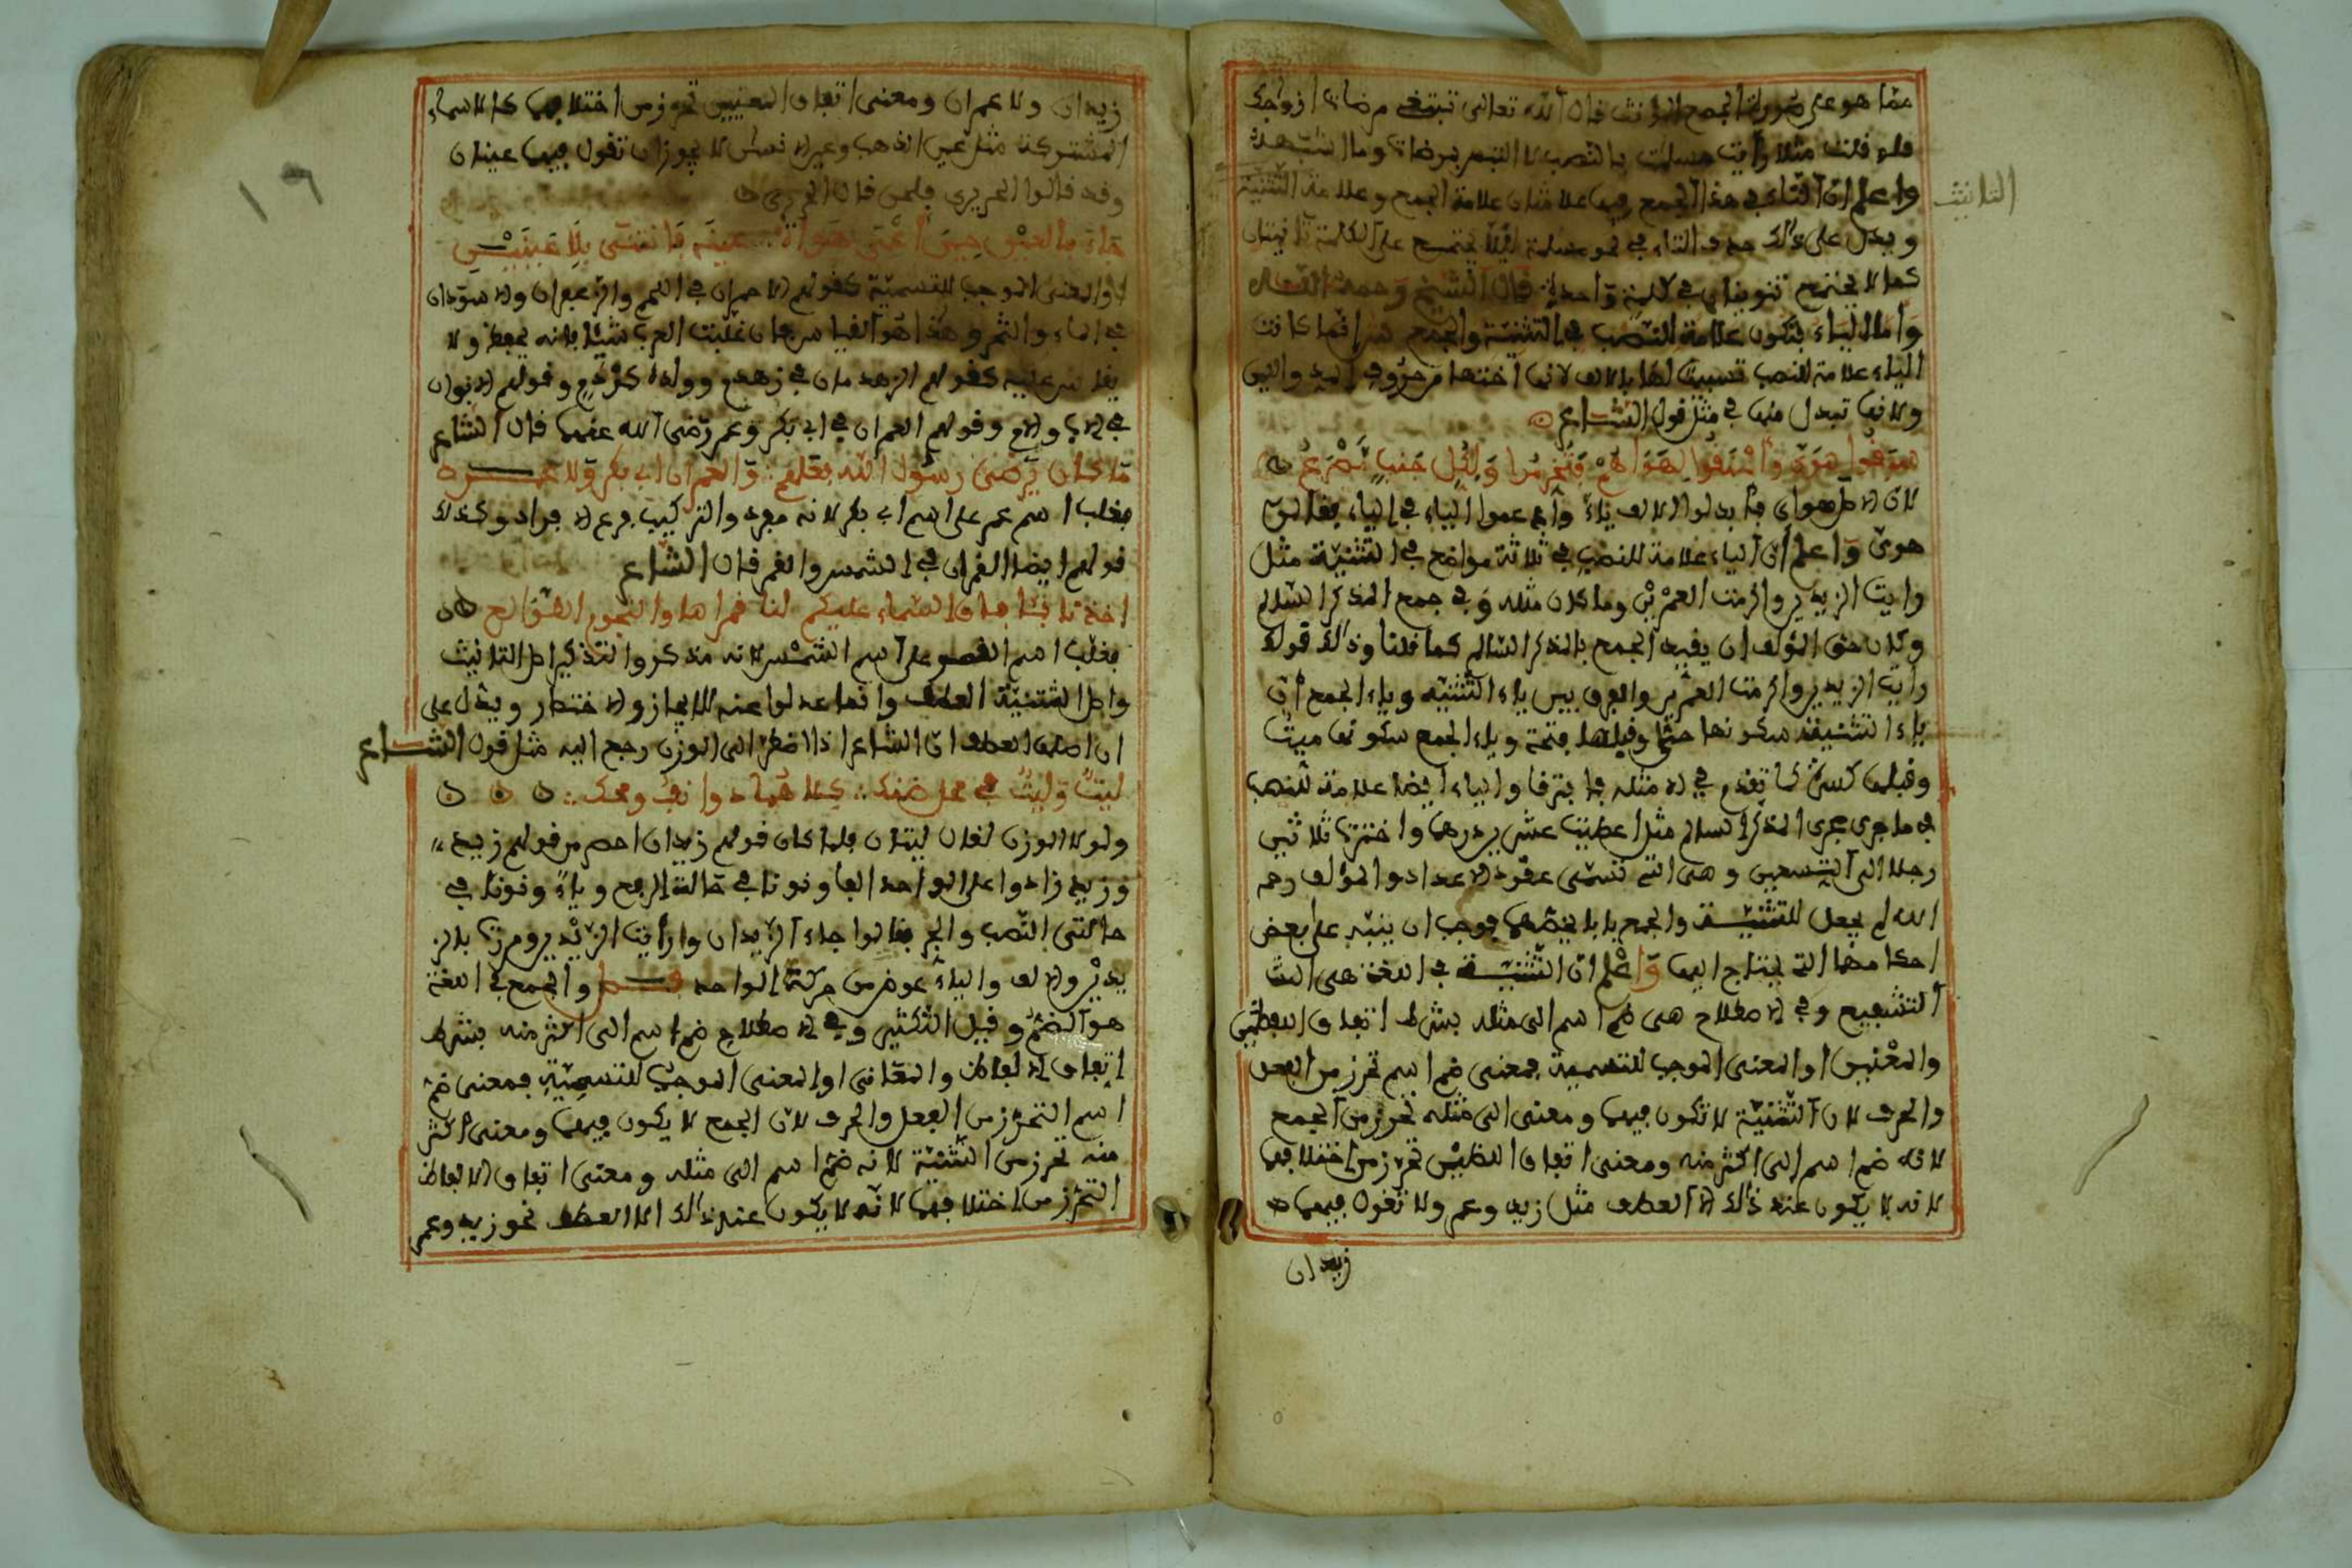 مما هو على صورة الجمع المؤنث قال الله تعالى تبتغي مرضات أزواجك
فلو قلت مثلا رأيت مسلمت بالنصب لا التبس بمرضات وما اشبهه
واعلم ان التاء في هذا الجمع فيها علامتان علامة الجمع وعلامة التثنية
التانيث
ويدل على ذلك حذف التاء في نحو مسلمة ليلا يجتمع على الكلمة تانيثان
كما لا يجتمع تنوينان في كلمة واحدة قال الشيخ رحمه الله
وأما الياء فتكون علامة النصب في التثنية والجمع ش انما كانت
الياء علامة للنصب تشبيها لها بالالف لانها أختها من حروف المد واللين
ولانها تبدل منها في مثل قول الشاعر
سبقوا هوى وأعنقوا لهواهم فتخرموا ولكل جنب مصرع
لان الاصل هواي فابدلوا الالف ياء وأدغموا الياء في الياء فقالوا
هوي واعلم أن الياء علامة للنصب في ثلاثة مواضع في التثنية مثل
رايت الزيدين واكرمت العمرين وما كان مثله وفي جمع المذكر السالم
وكان حق المؤلف ان يقيد الجمع بالمذكر السالم كما قلنا وذلك قولك
رأيت الزيدين واكرمت العمرين والفرق بين ياء التثنية وياء الجمع أن
ياء التثنية سكونها حيا وقبلها فتحة وياء الجمع سكونها ميت
وقبلها كسرة كما تقدم في الامثلة فافترقا والياء ايضا علامة للنصب
في ما جرى مجرى المذكر السالم مثل اعطيت عشرين درهما واخترت ثلاثين
رجلا الى التسعين وهي التي تسمى عقود الاعداد والمؤلف رحمه
الله لم يجعل للتثنية والجمع بابا يخصهما فوجب ان ينبه على بعض
احكامهما التي يحتاج اليها واعلم ان التثنية في اللغة هي
التشفيع وفي الاصطلاح هي ضم اسم الى مثله بشرط اتفاق اللفظين
والمعنيين او المعنى الموجب للتسمية فمعنى ضم اسم تحرز من الفعل
والحرف لان التثنية لا تكون فيهما ومعنى الى مثله تحرز من الجمع
لانه ضم اسم الى اكثر منه ومعنى اتفاق اللفظين تحرز من اختلافهما
لانه لا يكون عند ذلك الا العطف مثل زيد وعمر ولا تقول فيهما
زيدان
١٩
زيدان ولا عمران ومعنى اتفاق المعنيين تحرز من اختلافهما كالاسماء
المشتركة مثل عين الذهب وعين الانسان لا يجوز ان تقول فيهما عينان
وقد قالوا الحريري فلحن قال الحريري
جاد بالعين حين أعمى هواه عينه فانثنى بلا عينين
او المعنى الموجب للتسمية كقولهم الاحمران في اللحم والزعفران والاسودان
في الماء والتمر وهذا هو القياس فان غلبت العرب شيئا فانه يحفظ ولا
يقاس عليه كقولهم الزهدمان في زهدم وولده كردم وقولهم الابوان
في الاب والام وقولهم العمران في ابي بكر وعمر رضي الله عنهما قال الشاعر
ما كان يرضى رسول الله فعلهم والعمران ابو بكر ولا عمر
فغلب اسم عمر على اسم ابي بكر لانه مفرد والتركيب فرع الافراد وكذلك
قولهم ايضا القمران في الشمس والقمر قال الشاعر
اخذنا بآفاق السماء عليكم لنا قمراها والنجوم الطوالع
فغلب اسم القمر على اسم الشمس لانه مذكر والتذكير اصل التانيث
واصل التثنية العطف وانما عدلوا عنه للايجاز والاختصار ويدل على
ان اصلها العطف ان الشاعر اذا اضطر الى الوزن رجع اليه مثل قول الشاعر
ليث وليث في محل ضنك كلاهما ذو انف ومحك
ولولا الوزن لقال ليثان فلما كان قولهم زيدان اخصر من قولهم زيد
وزيد زادوا على الواحد الفا ونونا في حالة الرفع وياء ونونا في
حالتي النصب والجر فقالوا جاء الزيدان ورأيت الزيدين ومررت بالز
يدين والالف والياء عوض من حركة الواحد والجمع في اللغة
هو الضم وقيل التكثير وفي الاصطلاح ضم اسم الى اكثر منه بشرط
اتفاق الالفاظ والمعاني او المعنى الموجب للتسمية فمعنى ضم
اسم التحرز من الفعل والحرف لان الجمع لا يكون فيهما ومعنى اكثر
منه تحرز من التثنية لانه ضم اسم الى مثله ومعنى اتفاق الالفاظ
التحرز من اختلافهما لانه لا يكون عند ذلك الا العطف نحو زيد وعمر